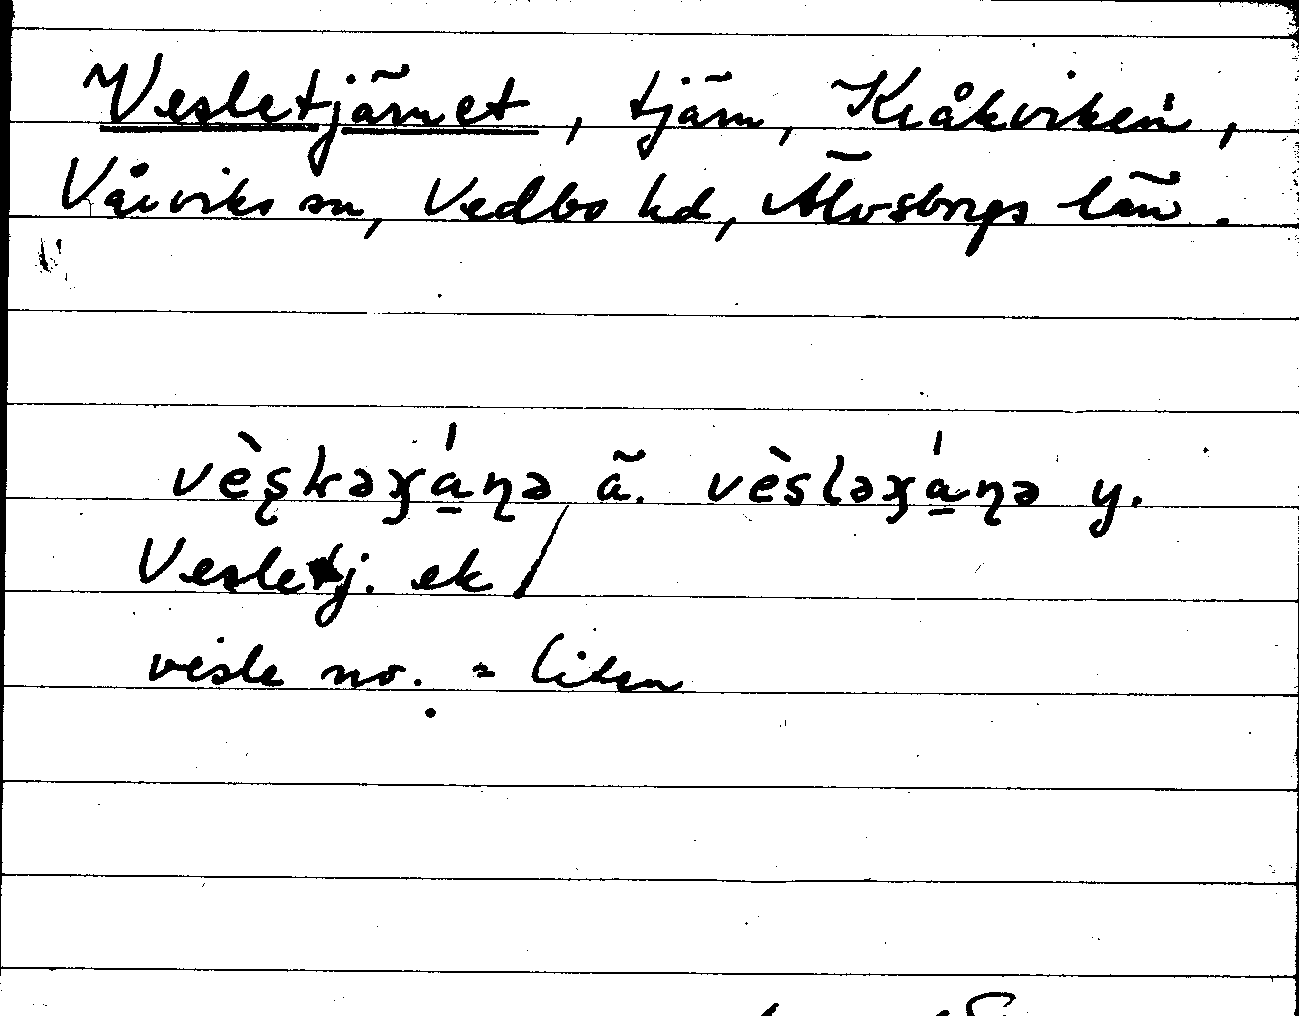 Vesletjärnet, tjärn, Kråkviken,
Vårviks sn, Vedbo hd, Älvsborgs län.
vèʂkəɣá̱ɳə ä. vèsləɣá̱ɳə y.
Vesletj. ek
vesle no. = liten